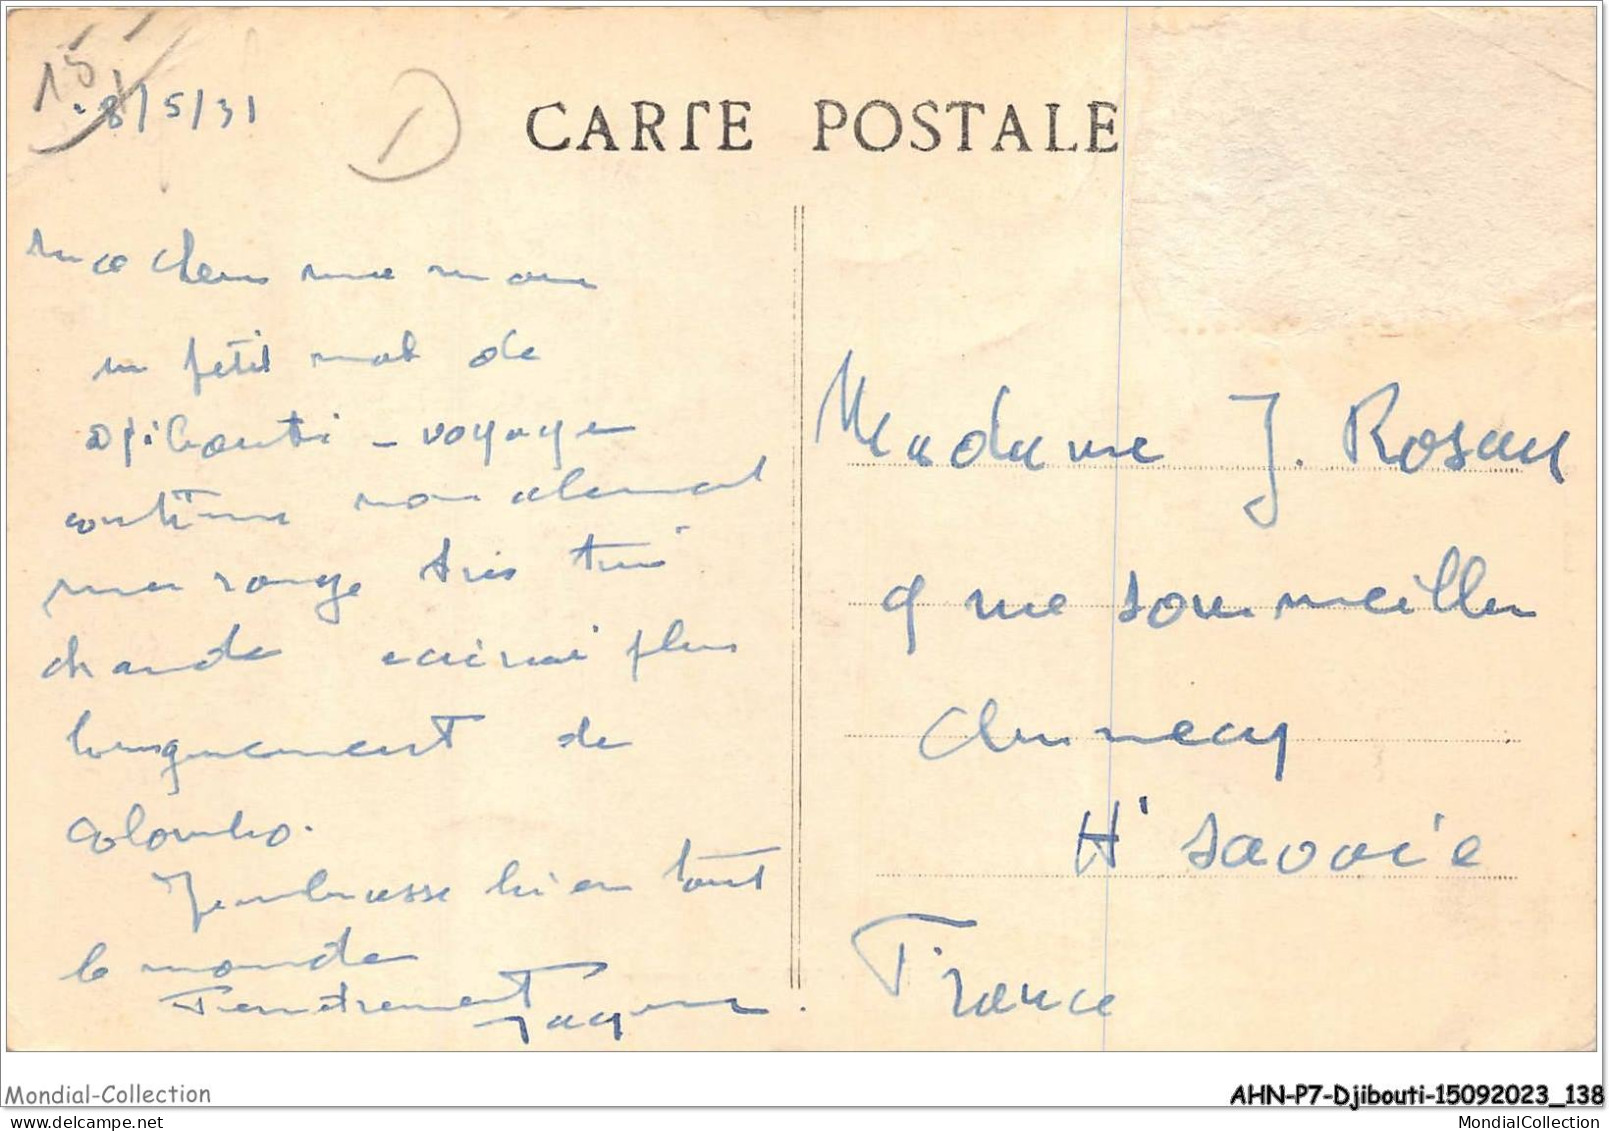 15
8/5/31
D
CARTE POSTALE
Ma chere maman
un petit mot de
Djibouti - voyage
continue normalement
mer rouge très très
chaude ecrirai plus
longuement de
Colombo.
J'embrasse bien tout
le monde
Tendrement
Jacques.
Madame J. Rosay
9 rue Sommeiller
Annecy
Hte Savoie
France
Mondial-Collection
AHN-P7-Djibouti-15092023_138
www.delcampe.net
MondialCollection